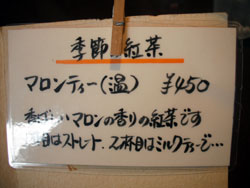 季節の紅茶
マロンティー(温) ¥450
香ばしいマロンの香りの紅茶です
杯目はストレート、2杯目はミルクティーで…